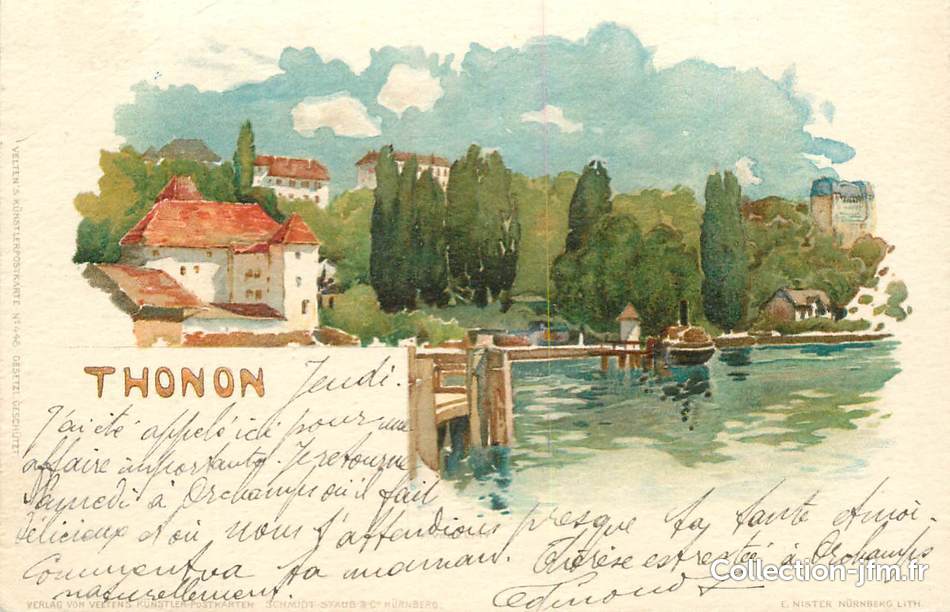 VELTEN'S KÜNSTLERPOSTKARTE No 446 GESETZL. GESCHÜTZT
THONON
Jeudi.
J'ai été appelé ici pour une
affaire importante. Je retourne
Samedi à Orchamps où il fait
délicieux et où nous t'attendions presque ta tante et moi.
Comment va ta maman. Thérèse est restée à Orchamps
naturellement. Edmond
Collection-jfm.fr
VERLAG VON VELTEN'S KÜNSTLER-POSTKARTEN SCHMIDT-STAUB & Co NÜRNBERG.
E. NISTER NÜRNBERG LITH.